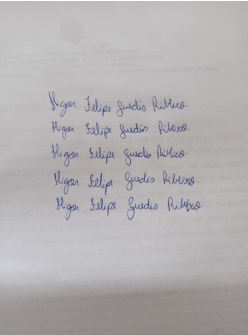 Higor Felipe Guedis Ribeiro.
Higor Felipe Guedis Ribeiro.
Higor Felipe Guedis Ribeiro.
Higor Felipe Guedis Ribeiro.
Higor Felipe Guedis Ribeiro.